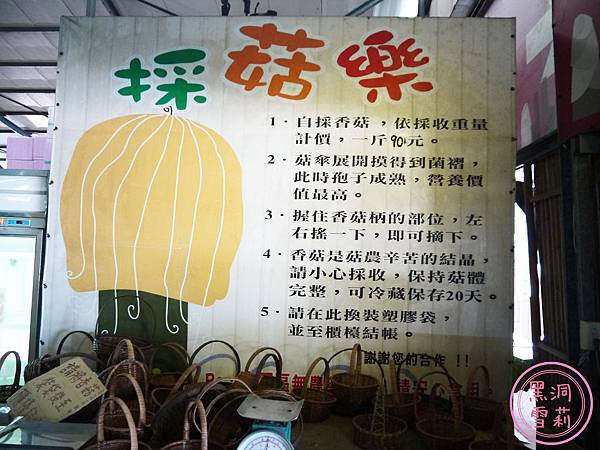 採菇樂
1．自採香菇，依採收重量
計價，一斤90元。
2．菇傘展開摸得到菌褶，
此時孢子成熟，營養價
值最高。
3．握住香菇柄的部位，左
右搖一下，即可摘下。
4．香菇是菇農辛苦的結晶，
請小心採收，保持菇體
完整，可冷藏保存20天。
5．請在此換裝塑膠袋，
並至櫃檯結帳。
謝謝您的合作 !!
黑洞
雪莉